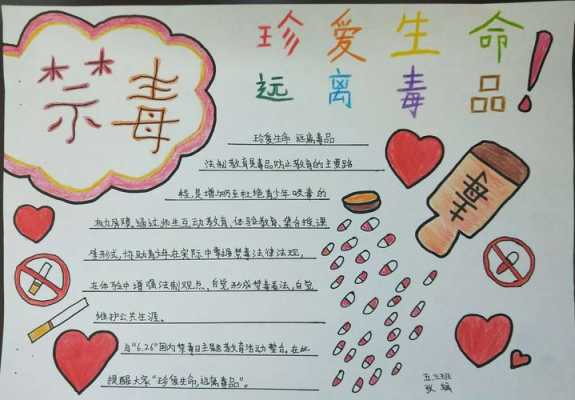 禁毒
珍爱生命
远离毒品!
珍爱生命 远离毒品
法制教育是毒品防止教育的主要路
径,是增巩至杜绝青少年吸毒的
通过师生互动教育,体验教育,集合授课
等形式,协助青少年在实际中掌握禁毒法律法规,
在体验中增强法制观点,自觉形成禁毒看法,自觉
维护公共生涯。
与"6.26"国内禁毒日主题教育活动整合,在此
提醒大家"珍爱生命,远离毒品"。
毒
五.三班